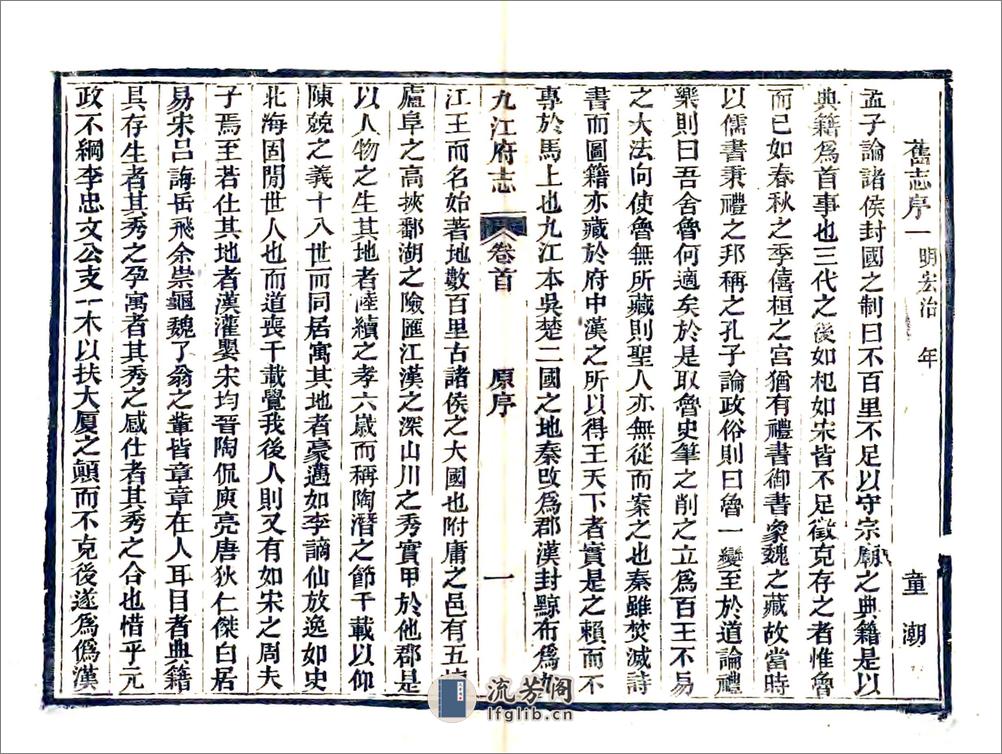 舊志序一 明宏治 年 童潮
孟子論諸侯封國之制曰不百里不足以守宗廟之典籍是以
典籍爲首事也三代之後如杞如宋皆不足徵克存之者惟魯
而已如春秋之季僖桓之宮猶有禮書御書象魏之藏故當時
以儒書秉禮之邦稱之孔子論政俗則曰魯一變至於道論禮
樂則曰吾舍魯何適矣於是取魯史筆之削之立爲百王不易
之大法向使魯無所藏則聖人亦無從而案之也秦雖焚滅詩
書而圖籍亦藏於府中漢之所以得王天下者實是之賴而不
專於馬上也九江本吳楚二國之地秦改爲郡漢封黥布爲九
九江府志 卷首 原序 一
江王而名始著地數百里古諸侯之大國也附庸之邑有五
廬阜之高挾鄱湖之險匯江漢之深山川之秀實甲於他郡是
以人物之生其地者陸績之孝六歲而稱陶潛之節千載以仰
陳兢之義十八世而同居寓其地者豪邁如李謫仙放逸如史
北海固閒世人也而道喪千載覺我後人則又有如宋之周夫
子焉至若仕其地者漢灌嬰宋均晉陶侃庾亮唐狄仁傑白居
易宋呂誨岳飛余祟龜魏了翁之輩皆章章在人耳目者典籍
具存生者其秀之孕寓者其秀之感仕者其秀之合也惜乎元
政不綱李忠文公支一木以扶大厦之顛而不克後遂爲僞漢
流芳阁
lfglib.cn